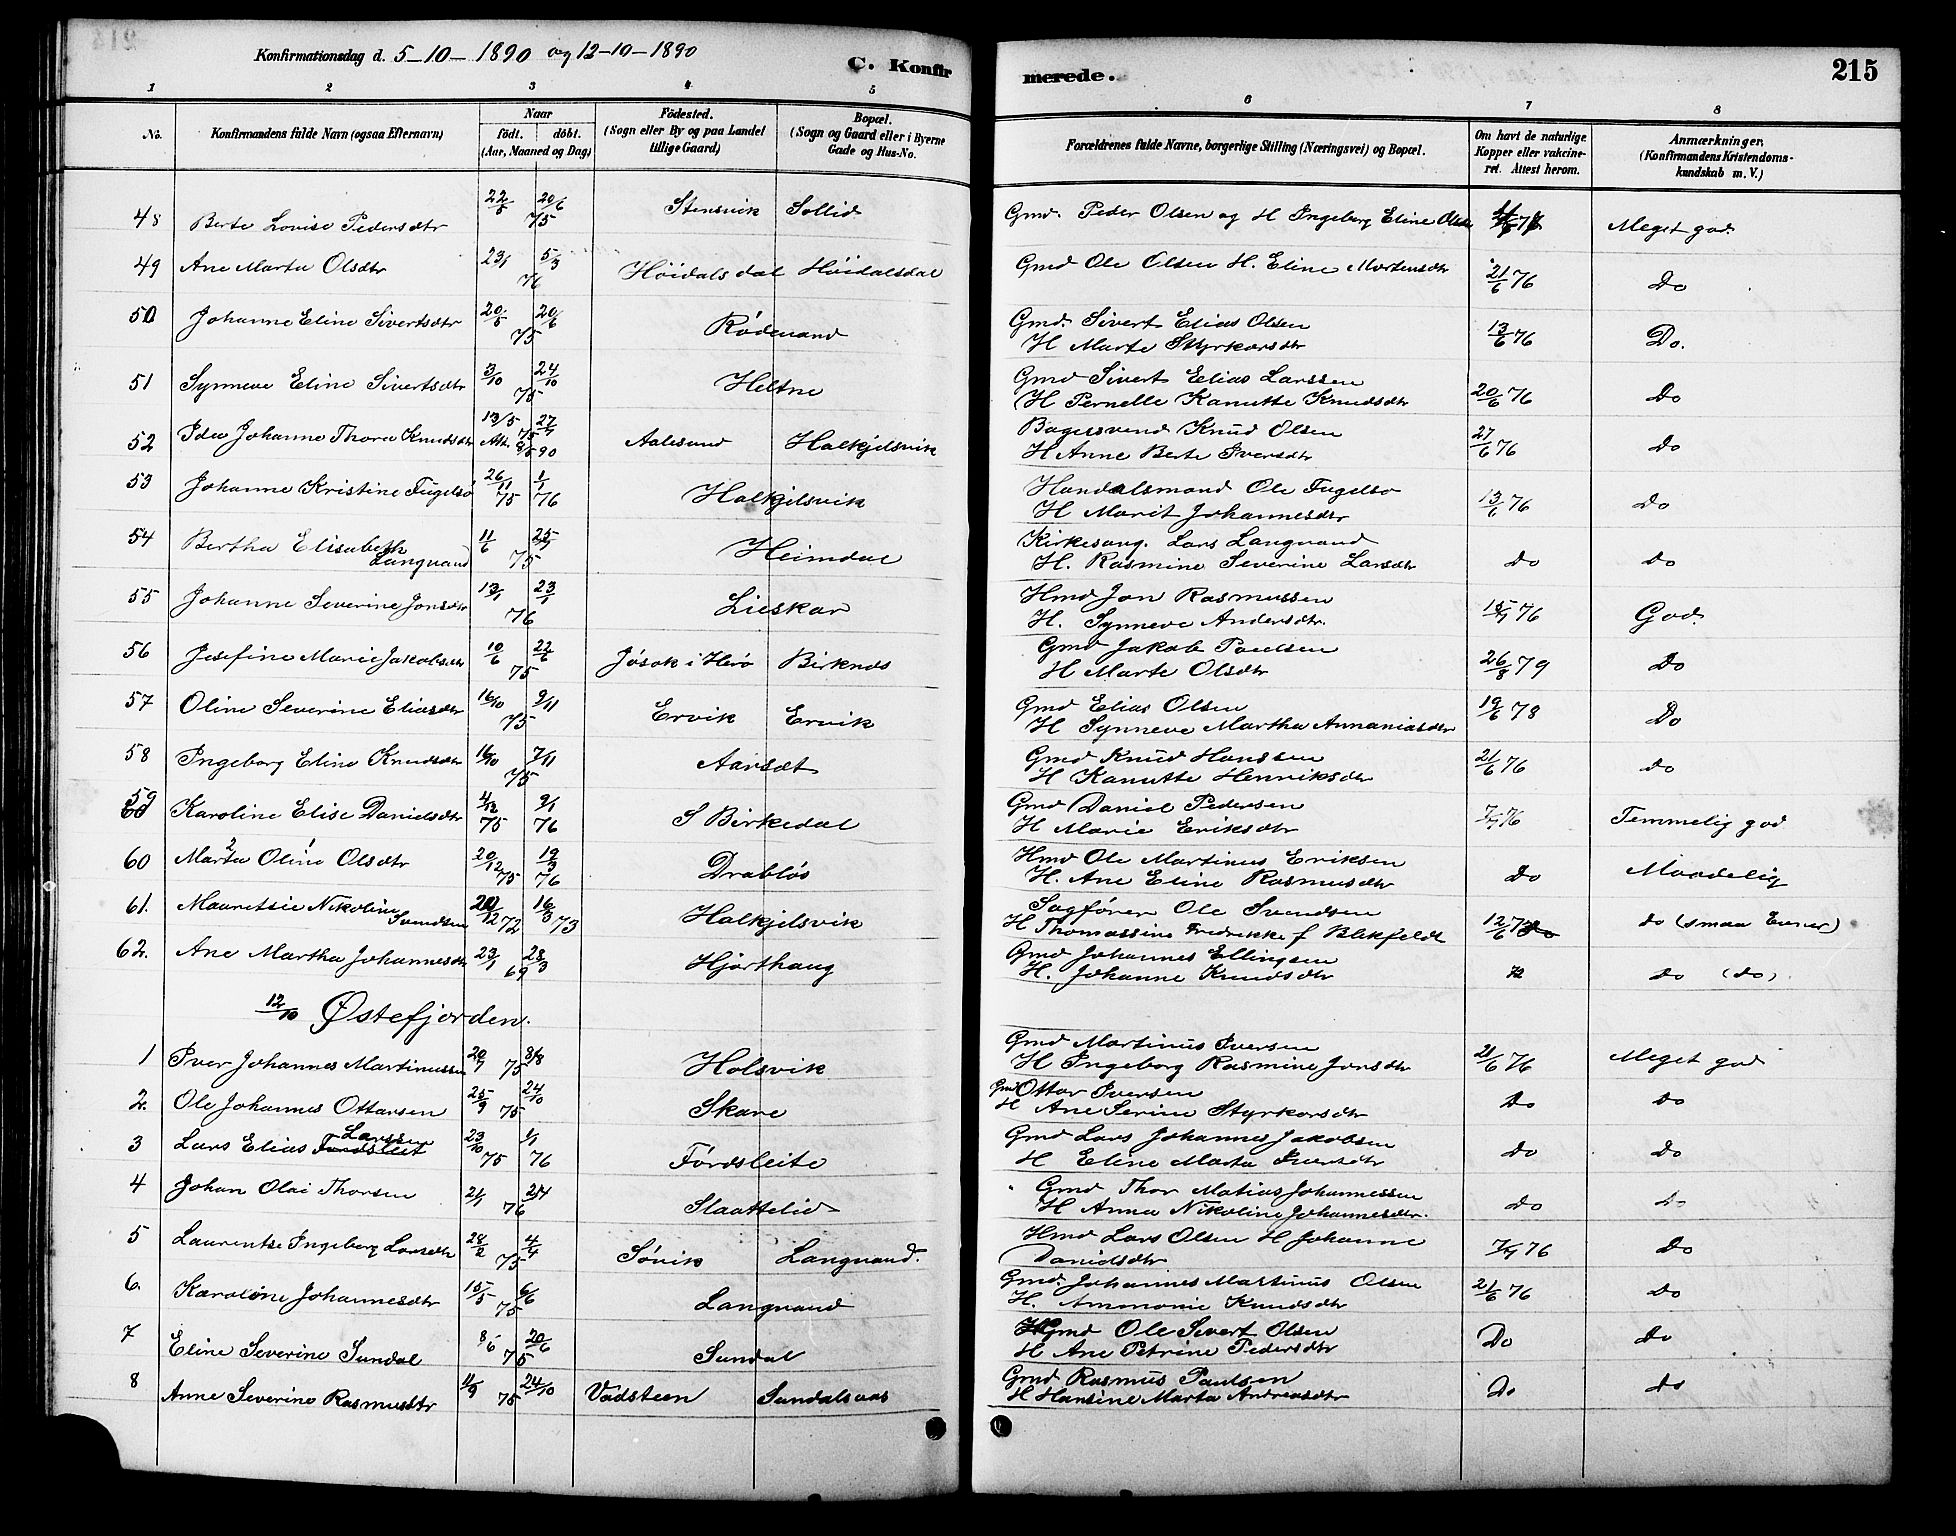 Konfirmationsdag d. 5-10-1890 og 12-10-1890
C. Konfirmerede. 215
1 2 3 4 5 6 7 8
No. Konfirmandens fulde Navn (ogsaa Efternavn) Naar födt. döbt. (Aar, Maaned og Dag) Födested. (Sogn eller By og paa Landet tillige Gaard) Bopæl. (Sogn og Gaard eller i Byerne Gade og Hus-No. Forældrenes fulde Navne, borgerlige Stilling (Næringsvei) og Bopæl. Om havt de naturlige Kopper eller vakcineret. Attest herom. Anmærkninger. (Konfirmandens Kristendomskundskab m. V.)
48 Berte Lovise Pedersdtr 22/5 20/6 75 Stensvik Sollid Gmd. Peder Olsen og H Ingeborg Eline Olsdtr Meget god.
49 Ane Marta Olsdtr 23/1 5/3 76 Höidalsdal Höidalsdal Gmd Ole Olsen H. Eline Martensdtr 21/6 76 Do
50 Johanne Eline Sivertsdtr 20/5 20/6 75 Rödevand Gmd. Sivert Elias Olsen
H Marte Styrkarsdtr 13/6 76 Do.
51 Synneve Eline Sivertsdtr 3/10 24/10 75 Heltne Gmd Sivert Elias Larssen
H Pernelle Kanutte Knudsdtr 20/6 76 Do
52 Ida Johanne Thora Knudsdtr 13/5 27/7 75 Att. 9/5 90 Aalesund Halkjelsvik Bagersvend Knud Olsen
H Anne Berte Iversdtr 27/6 76 Do
53 Johanne Kristine Fugelsö 26/11 75 1/1 76 Halkjelsvik Handelsmand Ole Fugelsö
H Marit Johannesdtr 13/6 76 Do
54 Bertha Elisabeth Langvand 11/6 25/7 75 Heimdal Kirkesang. Lars Langvand
H. Rasmine Severine Larsdtr do do
55 Johanne Severine Jonsdtr 13/1 23/1 76 Lieskar Hmd Jon Rasmussen
H. Synneve Andersdtr. 15/7 76 God.
56 Josefine Marie Jakobsdtr 10/6 22/6 75 Jösok i Herö Birknes Gmd Jakob Paulsen
H Marte Olsdtr 26/8 79 Do
57 Oline Severine Eliasdtr 16/10 9/11 75 Ervik Ervik Gmd Elias Olsen
H Synneve Martha Annaniasdtr 19/6 78 Do
58 Ingeborg Eline Knudsdtr 16/10 7/11 75 Aarsæt Gmd Knud Hanssen
H Kanutte Henriksdtr 21/6 76 do
59 Karoline Elise Danielsdtr 4/12 75 9/1 76 S Birkedal Gmd Daniel Pedersen
H Marie Eriksdtr 7/7 76 Temmelig god
60 Marta Oline Olsdtr 20/12 75 19/3 76 Drabløs Hmd Ole Martinus Eriksen
H. Ane Eline Rasmusdtr do Maadelig
61. Mauretsie Nikoline Svendsen 20/12 72 16/3 73 Halkjelsvik Sagförer Ole Svendsen
H Thomassine Fredrikke f Blikfeldt 12/6 73 do (smaa Evner)
62. Ane Martha Johannesdtr 23/1 28/3 69 Hjorthaug Gmd Johannes Ellingsen
H. Johanne Knudsdtr do (do)
12/10 Østefjorden.
1 Iver Johannes Martinussen 20/7 75 8/8 Holsvik Gmd Martinus Iversen
H Ingeborg Rasmine Jonsdtr 21/6 76 Meget god
2. Ole Johannes Ottarsen 25/9 75 24/10 Skare Gmd Ottar Iversen
H Ane Serine Styrkorsdtr Do do
3 Lars Elias Fördsleit Larssen 23/10 75 1/1 76 Fördsleite Gmd Lars Johannes Jakobsen
H Eline Marta Iversdtr do Do
4 Johan Olai Thorsen 21/1 76 Slaattelid Gmd Thor Matias Johannessen
H Anna Nikoline Johannesdtr. do do
5 Laurentse Ingeborg Larsdtr 28/2 4/4 75 Sövik Langvand. Hmd Lars Olsen H Johanne
Danielsdtr 7/7 76 Do
6. Karoline Johannesdtr 15/5 6/6 75 Langvand Gmd. Johannes Martinus Olsen
H. Ammonie Knudsdtr 21/6 76 do
7 Eline Severine Sundal 8/5 20/6 75 Sundal Gmd Ole Sivert Olsen
H Ane Petrine Pedersdtr Do Do
8 Anne Severine Rasmusdtr 11/9 75 24/10 Vadsteen Sundalsaas Gmd Rasmus Paulsen
H Hansine Marta Andreasdtr Do do